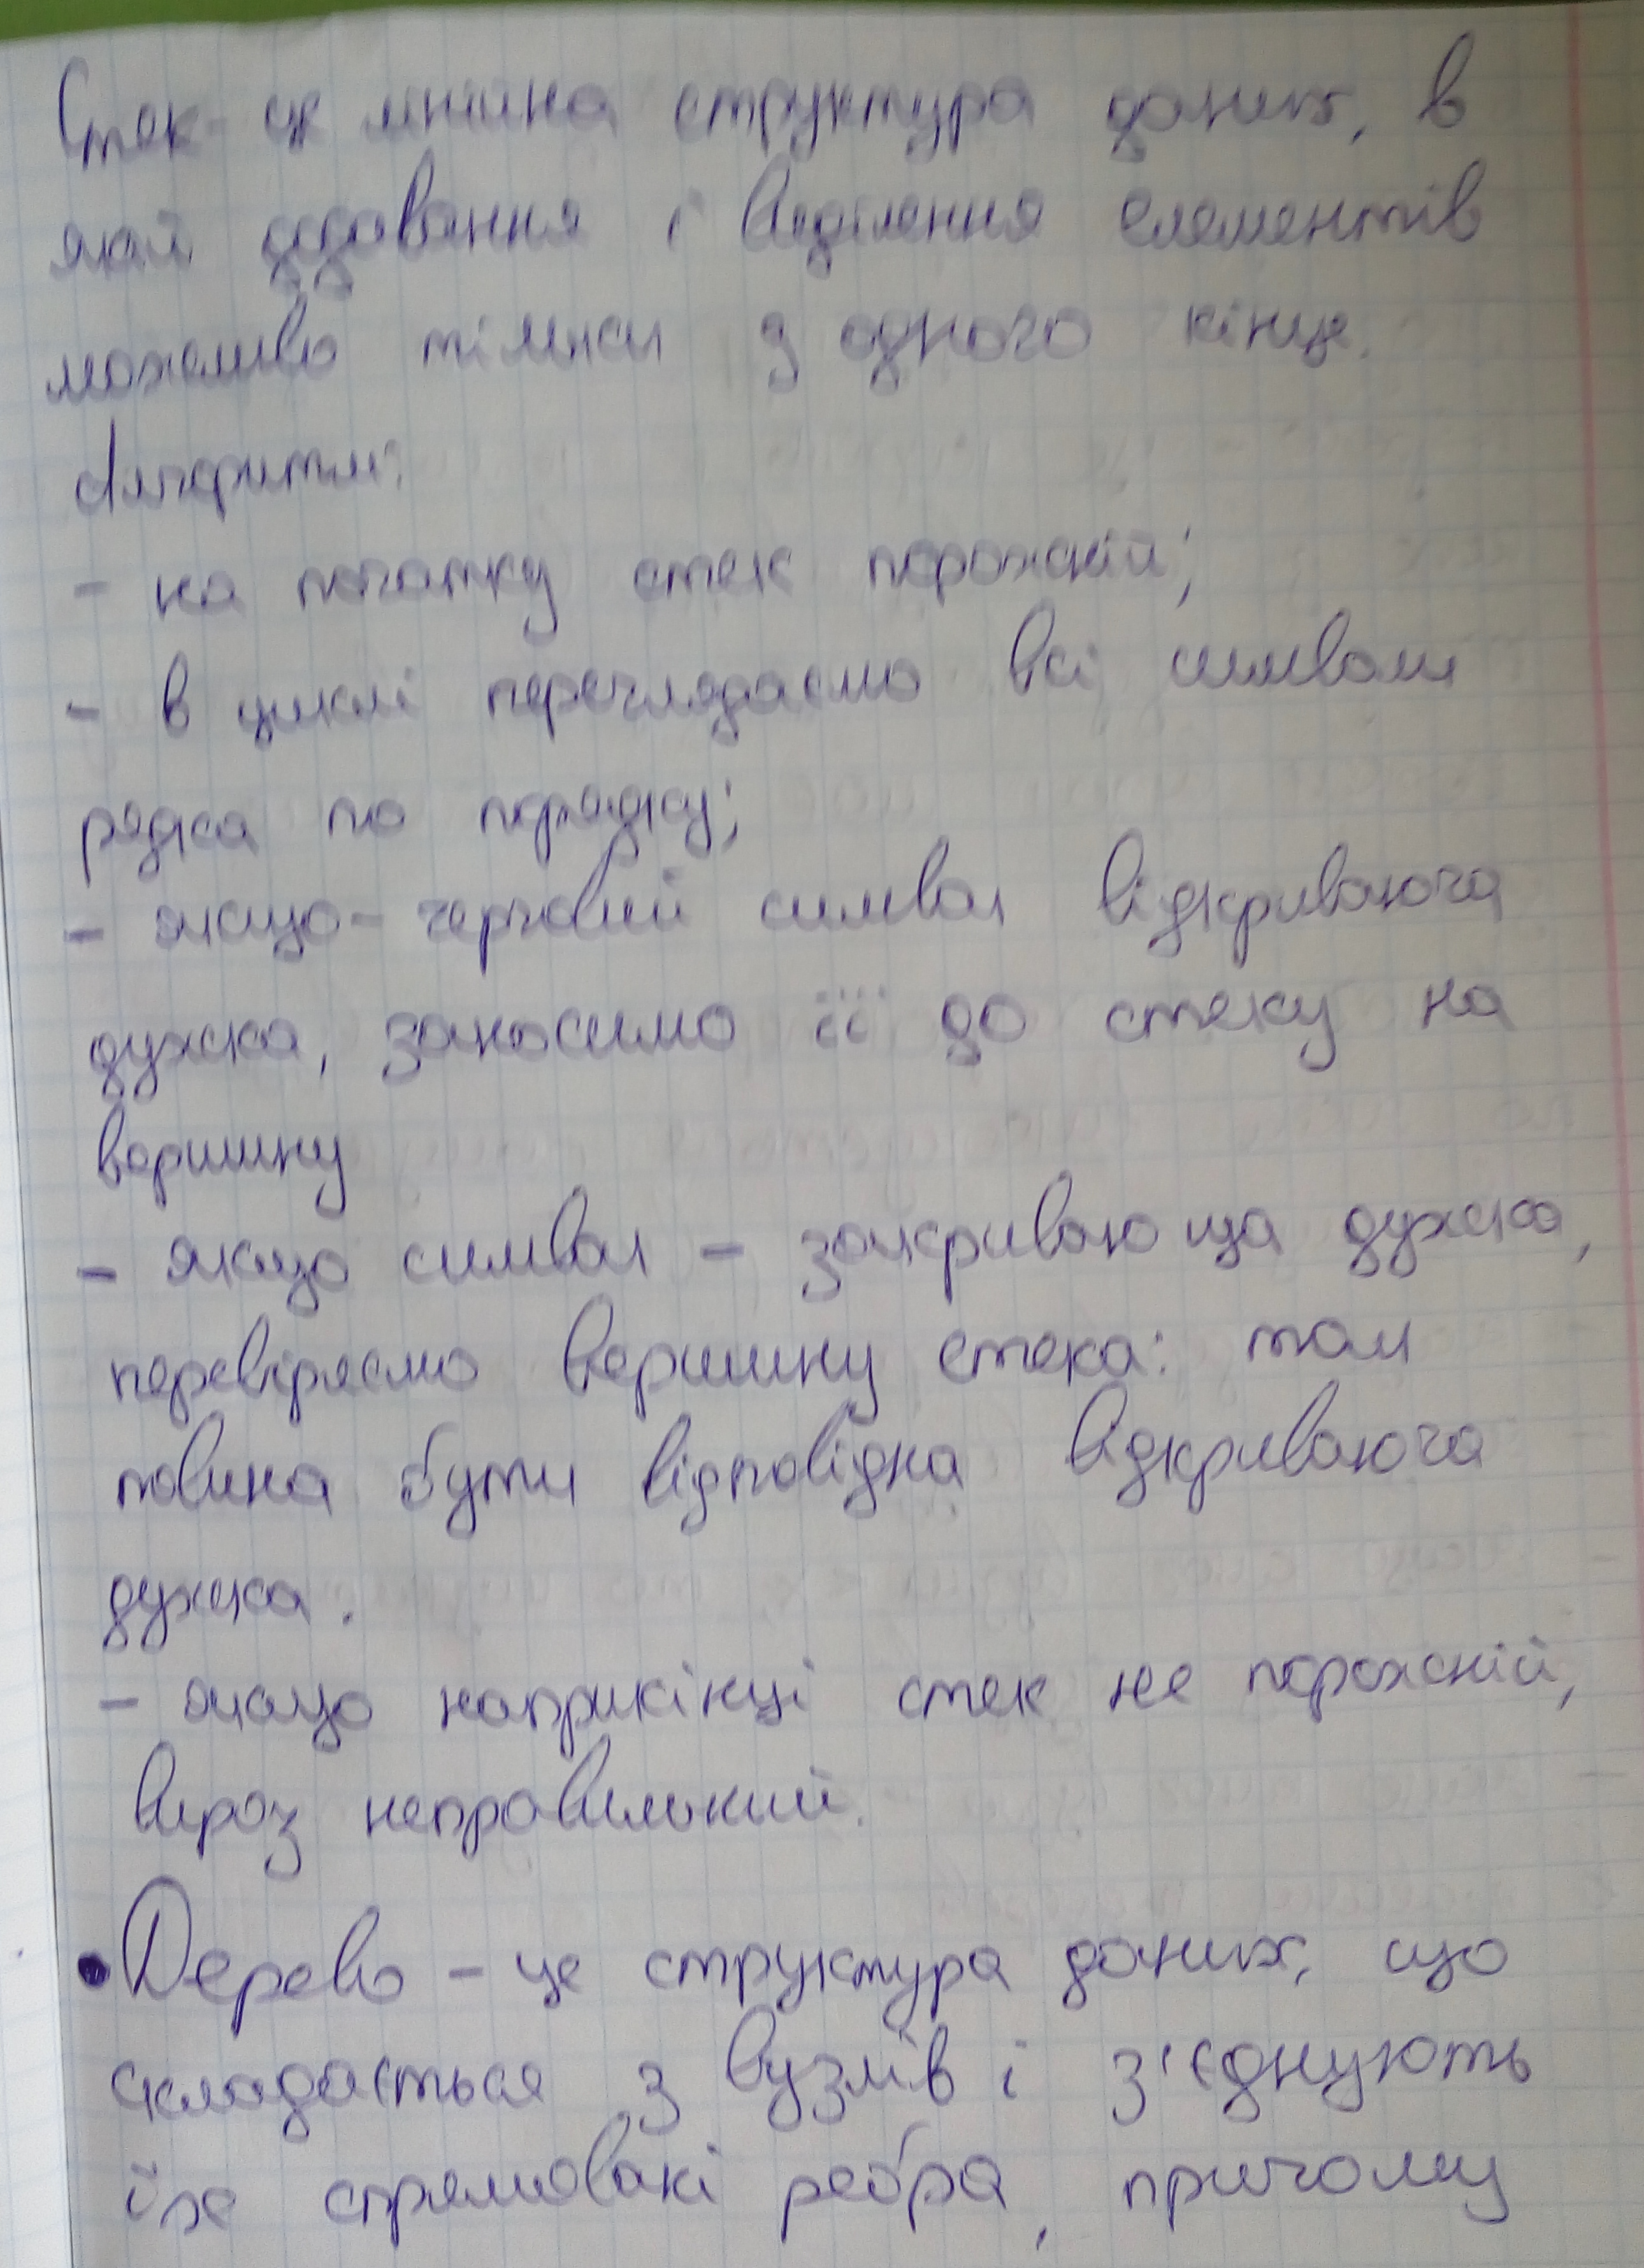 Стек - це лінійна структура даних, в
якій додавання і виділення елементів
можливо тільки з одного кінця.
Алгоритм:
- на початку стек порожній;
- в циклі переглядаємо всі символи
рядка по порядку;
- якщо - черговий символ відкриваюча
дужка, заносимо її до стеку на
вершину
- якщо символ - закривающа дужка,
перевіряємо вершину стека: там
повина бути відповідна відкриваюча
дужка.
- якщо наприкінці стек не порожній,
вираз неправильний.
• Дерево - це структура даних, що
складається з вузлів і з'єднують
їх спрямовані ребра, причому